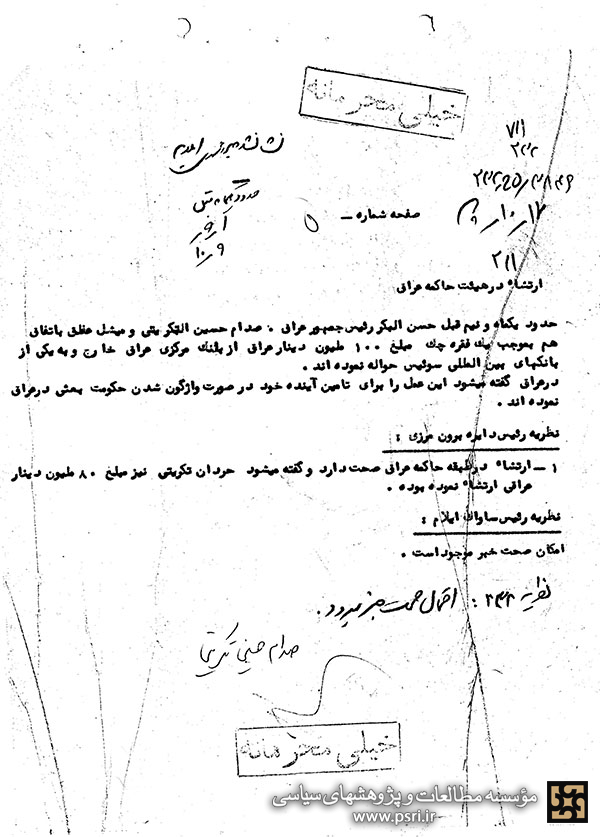 خیلی محرمانه
۷۱۱
۲۳۲
صفحه شماره –
۵
۲۱۱
ارتشاء در هیئت حاکمه عراق
حدود یکماه و نیم قبل حسن البکر رئیس جمهور عراق . صدام حسین التکریتی و میشل عفلق باتفاق
هم بموجب یک فقره چک مبلغ ۱۰۰ ملیون دینار عراق از بانک مرکزی عراق خارج و به یکی از
بانکهای بین المللی سوئیس حواله نموده اند .
در عراق گفته میشود این عمل را برای تامین آینده خود در صورت واژگون شدن حکومت بعث در عراق
نموده اند .
نظریه رئیس دایره برون مرزی :
۱ – ارتشاء در طبقه حاکمه عراق صحت دارد و گفته میشود حردان تکریتی نیز مبلغ ۸۰ ملیون دینار
عراقی ارتشاء نموده بوده .
نظریه رئیس ساواک ایلام :
امکان صحت خبر موجود است .
نظریه ۲۳۲ : احتمال صحت خبر میرود .
صدام حسین تکریتی
خیلی محرمانه
مؤسسه مطالعات و پژوهشهای سیاسی
www.psri.ir